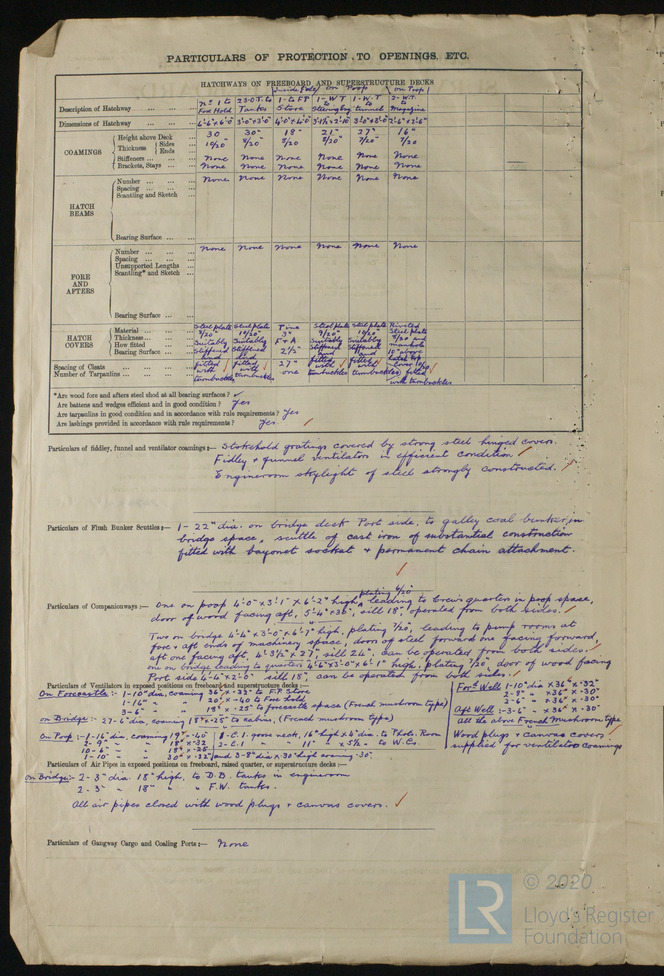 PARTICULARS OF PROTECTION TO OPENINGS, ETC.
HATCHWAYS ON FREEBOARD AND SUPERSTRUCTURE DECKS
Inside Fo'c'le on Poop on Poop
Description of Hatchway No 1 to Fore Hold 23 O.T. to Tanks 1 to FP Store 1-WT to 1-W.T to tunnel 2-W.T to Magazine
Dimensions of Hatchway 3'-0"x3'-0" 4'-0"x4'-0" 2'-6"x2'-6"
COAMINGS
Height above Deck 30 30" 18" 21" 27" 16"
Thickness Sides Ends 10/20 9/20" 8/20 8/20" 7/20" 7/20
Stiffeners None None None None None None
Brackets, Stays None None None None None None
HATCH BEAMS
Number None None None None None None
Spacing
Scantling and Sketch
Bearing Surface
FORE AND AFTERS
Number None None None None None None
Spacing
Unsupported Lengths
Scantling* and Sketch
Bearing Surface
HATCH COVERS
Material Steel plate Steel plate Pine Steel plate Steel plate Steel plate
Thickness 3"
How fitted Suitably Suitably F+A Suitably Suitably
Bearing Surface Stiffened and Stiffened and 2½" Stiffened and Stiffened and
Spacing of Cleats fitted with fitted with 27" fitted with fitted with fitted
Number of Tarpaulins turnbuckles turnbuckles one turnbuckles turnbuckles with turnbuckles
*Are wood fore and afters steel shod at all bearing surfaces?
Are battens and wedges efficient and in good condition? Yes
Are tarpaulins in good condition and in accordance with rule requirements? Yes
Are lashings provided in accordance with rule requirements? Yes
Particulars of fiddley, funnel and ventilator coamings:— Stokehold gratings covered by strong steel hinged covers.
Fidley + funnel ventilators in efficient condition.
Engineroom skylight of steel strongly constructed.
Particulars of Flush Bunker Scuttles:— 1 - 22" dia. on bridge deck Port side, to galley coal bunker, in
bridge space, scuttle of cast iron of substantial construction
fitted with bayonet socket + permanent chain attachment.
plating 6/20
Particulars of Companionways:— One on poop 4'-0" x 3'-1" x 6'-2" high, leading to Crew's quarters in poop space,
door of wood facing aft, 5'-4" x 30", sill 18", operated from both sides.
Two on bridge 4'-4" x 3'-0" x 6'-7" high, plating 7/20, leading to pump rooms at
fore + aft ends of machinery space, doors of steel forward one facing forward,
aft one facing aft, 4'-3½" x 27", sill 24", can be operated from both sides.
one on bridge leading to quarters 4'-6" x 3'-0" x 6'-1" high, plating 7/20, door of wood facing
Port side 4'-4" x 2'-0" sill 18", can be operated from both sides.
Particulars of Ventilators in exposed positions on freeboard and superstructure decks:—
On Forecastle:- 1-10" dia, coaming 36" x .32" to F.P. Store
1-14" " " 20" x .40 to Fore hold
3-6" " " 18" x .25" to forecastle space (French mushroom type)
on Bridge:- 27-6" dia, coaming 18" x .25" to cabins, (French mushroom type)
On Poop:- 1-16" dia, coaming 19" x .40"
2-9" " " 18" x .32
10-6" " " 18" x .25
1-10" " " 30" x .32" and 3-8" dia x 30" high coaming .30"
1-C.I. goose neck, 16" high x 6" dia. to Photo. Room
2-C.I. " " 11" " x 5½" to W.Cs.
Ford Well 1-10" dia x 36" x .32"
2-8" " x 36" x .30"
2-6" " x 36" x .30"
Aft Well :- 3-6" " x 36" x .30"
All the above French Mushroom type
Wood plugs + canvas covers
supplied for ventilator coamings
Particulars of Air Pipes in exposed positions on freeboard, raised quarter, or superstructure decks:—
on Bridge:- 2-3" dia. 18" high, to D.B. tanks in engineroom
2-3" " 18" " " F.W. tanks.
All air pipes closed with wood plugs + canvas covers.
Particulars of Gangway Cargo and Coaling Ports:— None
LR
© 2020
Lloyd's Register
Foundation